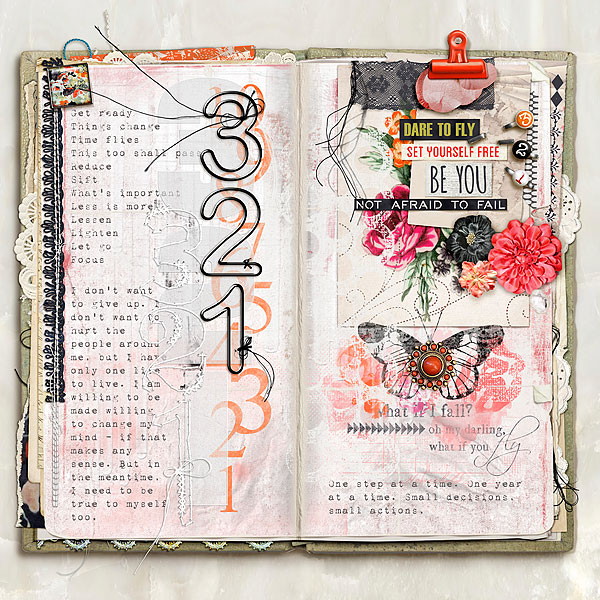 Get ready
Things change
Time flies
This too shall pass
Reduce
Sift
What's important
Less is more
Lessen
Lighten
Let go
Focus
I don't want
to give up. I
don't want to
hurt the
people around
me. but I have
only one life
to live. I am
willing to be
made willing
to change my
mind - if that
makes any
sense. But in
the meantime.
I need to be
true to myself
too.
3
2
1
9
7
5
4
3
2
1
DARE TO FLY
SET YOURSELF FREE
BE YOU
NOT AFRAID TO FAIL
What if I fall?
oh my darling,
what if you fly
One step at a time. One year
at a time. Small decisions.
small actions.